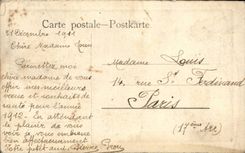 Carte postale—Postkarte
31 Décembre 1911
Chère Madame Louis
Permettez moi
chère madame de vous
offrir mes meilleurs
vœux et souhaits de
santé pour l'année
1912. En attendant
le plaisir de vous
voir je vous embrasse
bien affectueusement
Votre petit ami Pierre
Madame Louis
14, rue St Ferdinand
Paris
17ème Arr